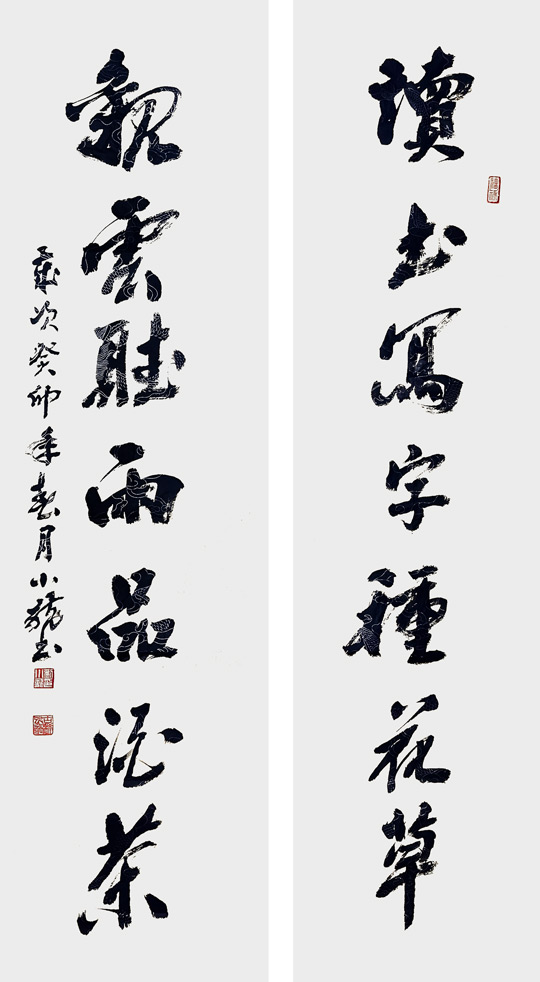 讀书寫字種花草
觀雲聽雨品酒茶
歲次癸卯年春月小龍书